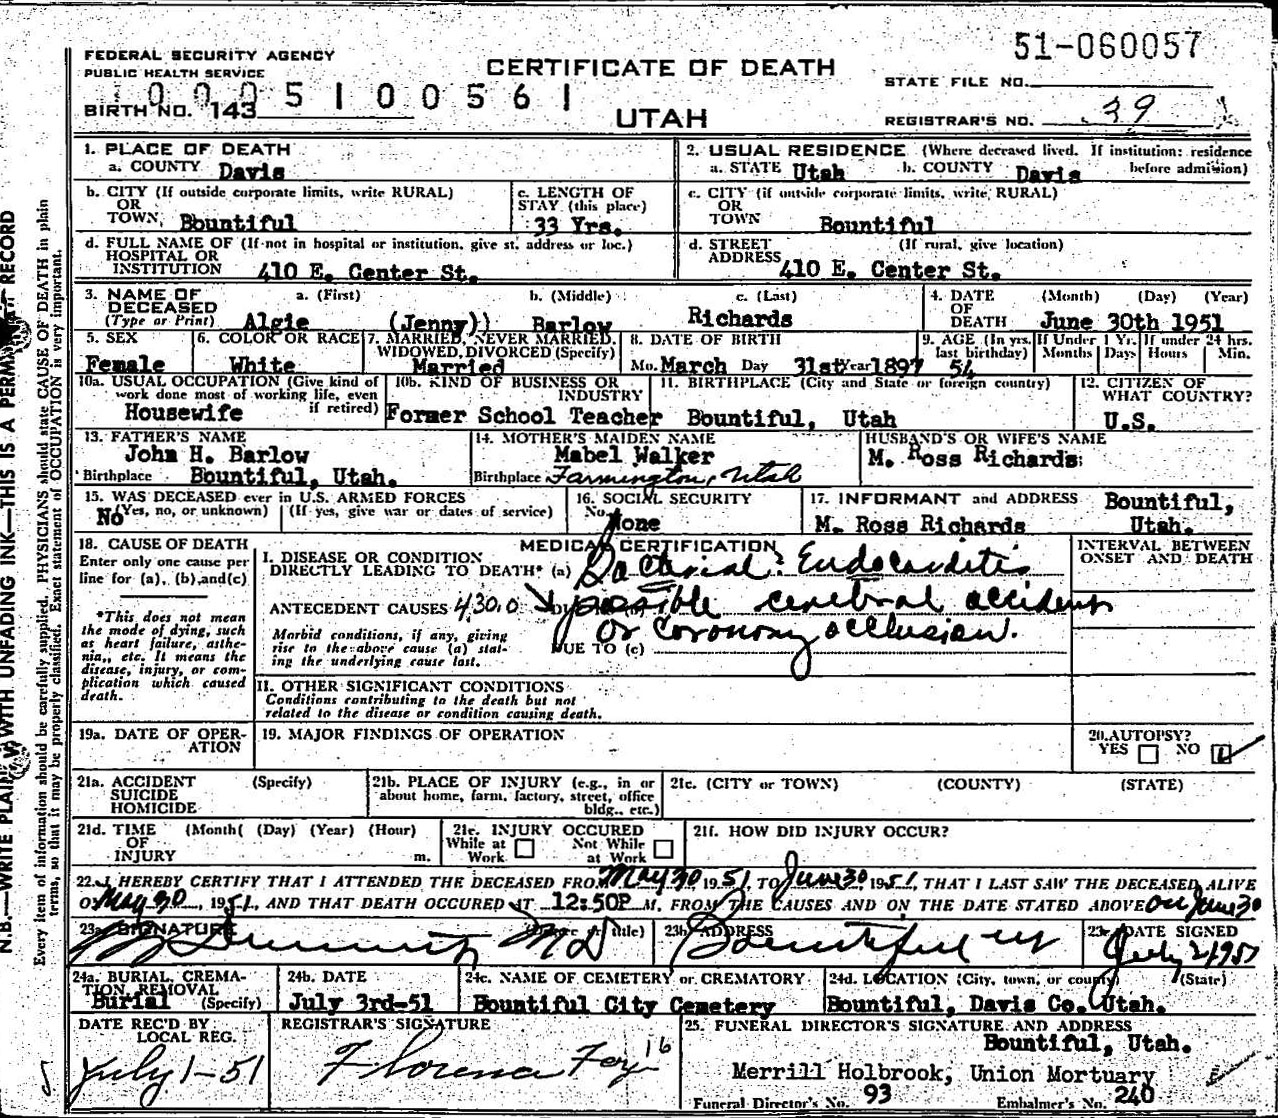 51-060057
FEDERAL SECURITY AGENCY
PUBLIC HEALTH SERVICE
CERTIFICATE OF DEATH
STATE FILE NO.
BIRTH NO. 143
10005100561
UTAH
REGISTRAR'S NO. 39
1. PLACE OF DEATH
a. COUNTY Davis
2. USUAL RESIDENCE (Where deceased lived. If institution: residence before admission)
a. STATE Utah b. COUNTY Davis
b. CITY (If outside corporate limits, write RURAL)
OR
TOWN Bountiful
c. LENGTH OF
STAY (this place)
33 Yrs.
c. CITY (if outside corporate limits, write RURAL)
OR
TOWN Bountiful
d. FULL NAME OF (If not in hospital or institution, give st. address or loc.)
HOSPITAL OR
INSTITUTION 410 E. Center St.
d. STREET (If rural, give location)
ADDRESS 410 E. Center St.
3. NAME OF DECEASED
(Type or Print)
a. (First) b. (Middle) c. (Last)
Algie (Jenny)) Barlow Richards
4. DATE OF DEATH (Month) (Day) (Year)
June 30th 1951
5. SEX
Female
6. COLOR OR RACE
White
7. MARRIED, NEVER MARRIED,
WIDOWED, DIVORCED (Specify)
Married
8. DATE OF BIRTH
Mo. March Day 31st Year 1897
9. AGE (In yrs. last birthday)
54
If Under 1 Yr. Months Days
If under 24 hrs. Hours Min.
10a. USUAL OCCUPATION (Give kind of
work done most of working life, even
if retired)
Housewife
10b. KIND OF BUSINESS OR
INDUSTRY
Former School Teacher
11. BIRTHPLACE (City and State or foreign country)
Bountiful, Utah
12. CITIZEN OF
WHAT COUNTRY?
U.S.
13. FATHER'S NAME
John H. Barlow
Birthplace Bountiful, Utah.
14. MOTHER'S MAIDEN NAME
Mabel Walker
Birthplace Farmington, Utah
HUSBAND'S OR WIFE'S NAME
M. Ross Richards
15. WAS DECEASED ever in U.S. ARMED FORCES
(Yes, no, or unknown) (If yes, give war or dates of service)
No
16. SOCIAL SECURITY
No. None
17. INFORMANT and ADDRESS Bountiful,
M. Ross Richards Utah.
18. CAUSE OF DEATH
Enter only one cause per
line for (a), (b), and (c)
*This does not mean
the mode of dying, such
as heart failure, asthe-
nia,, etc. It means the
disease, injury, or com-
plication which caused
death.
MEDICAL CERTIFICATION
I. DISEASE OR CONDITION
DIRECTLY LEADING TO DEATH* (a) Bacterial Endocarditis
ANTECEDENT CAUSES 430.0 possible cerebral accident
or coronary occlusion.
Morbid conditions, if any, giving
rise to the above cause (a) stat-
ing the underlying cause last.
DUE TO (c)
INTERVAL BETWEEN
ONSET AND DEATH
II. OTHER SIGNIFICANT CONDITIONS
Conditions contributing to the death but not
related to the disease or condition causing death.
19a. DATE OF OPER-
ATION
19. MAJOR FINDINGS OF OPERATION
20. AUTOPSY?
YES NO
21a. ACCIDENT (Specify)
SUICIDE
HOMICIDE
21b. PLACE OF INJURY (e.g., in or
about home, farm, factory, street, office
bldg., etc.)
21c. (CITY or TOWN) (COUNTY) (STATE)
21d. TIME (Month( (Day) (Year) (Hour)
OF
INJURY m.
21e. INJURY OCCURED
While at Work Not While at Work
21f. HOW DID INJURY OCCUR?
22. I HEREBY CERTIFY THAT I ATTENDED THE DECEASED FROM May 30 1951, TO June 30 1951, THAT I LAST SAW THE DECEASED ALIVE
ON May 30, 1951, AND THAT DEATH OCCURED AT 12:50P M. FROM THE CAUSES AND ON THE DATE STATED ABOVE on June 30
23a. SIGNATURE (Degree or title)
MD
23b. ADDRESS
Bountiful
23c. DATE SIGNED
July 2 1951
24a. BURIAL, CREMA-
TION REMOVAL
Burial (Specify)
24b. DATE
July 3rd-51
24c. NAME OF CEMETERY or CREMATORY
Bountiful City Cemetery
24d. LOCATION (City, town, or county) (State)
Bountiful, Davis Co. Utah.
DATE REC'D BY
LOCAL REG.
July 1-51
REGISTRAR'S SIGNATURE
Florence Foy 16
25. FUNERAL DIRECTOR'S SIGNATURE AND ADDRESS
Bountiful, Utah.
Merrill Holbrook, Union Mortuary
Funeral Director's No. 93 Embalmer's No. 240
N.B.—WRITE PLAINLY WITH UNFADING INK—THIS IS A PERMANENT RECORD
Every item of information should be carefully supplied. PHYSICIANS should state CAUSE OF DEATH in plain
terms, so that it may be properly classified. Exact statement of OCCUPATION is very important.